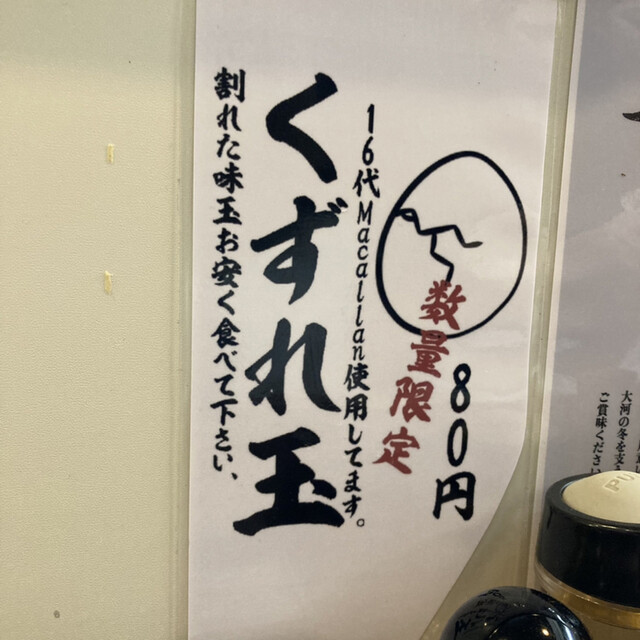 80円
数量限定
16代Macallan使用してます。
くずれ玉
割れた味玉お安く食べて下さい、
大河の冬を
ご賞味ください
PU